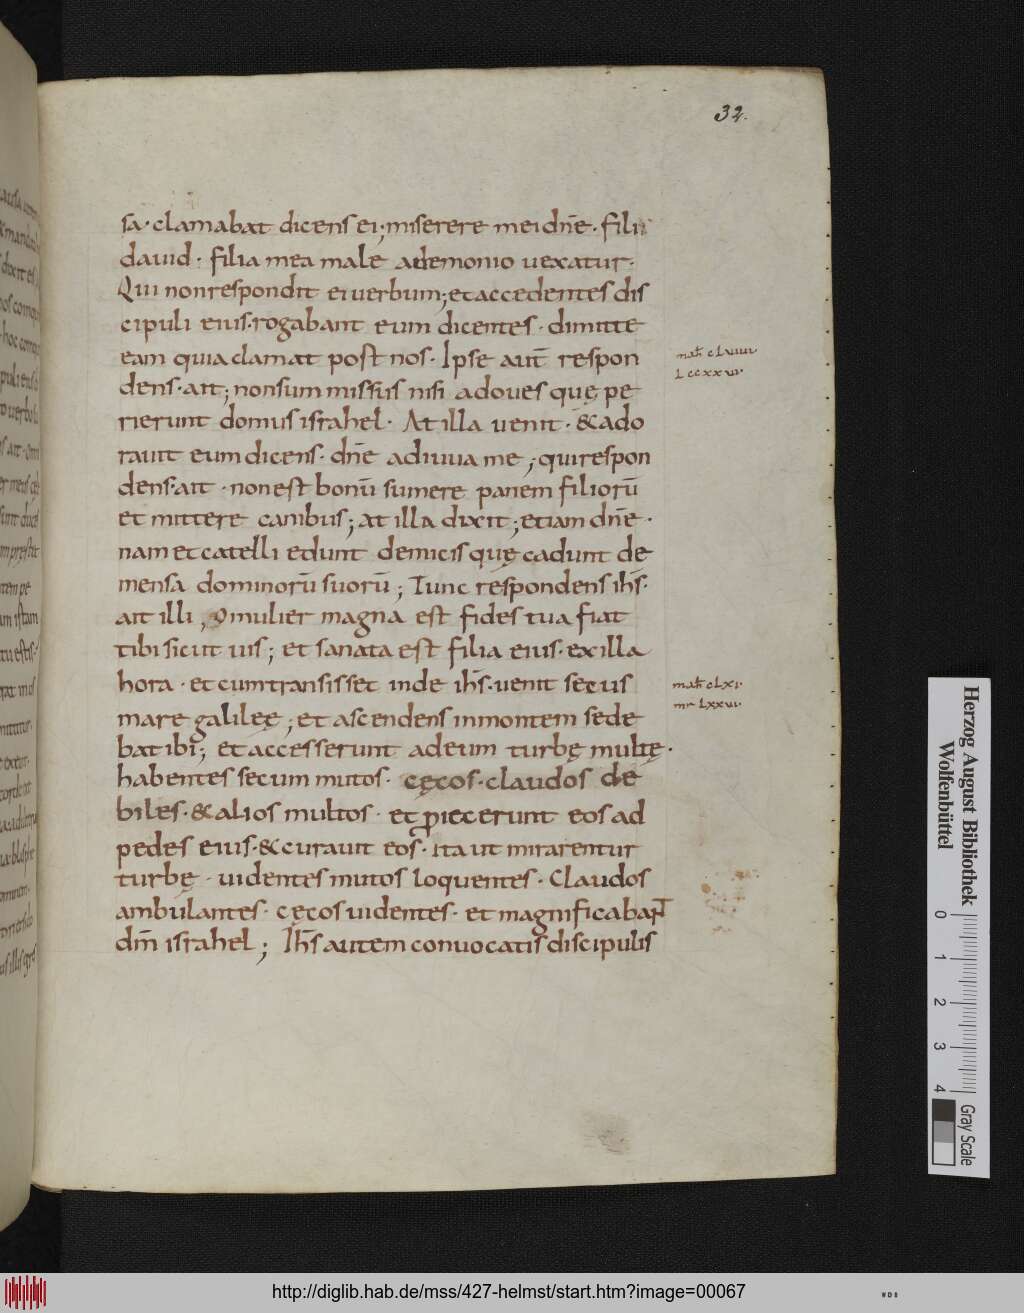 32.
sa· clamabat dicens ei; miserere mei dn̄e· fili
dauid· filia mea male a demonio uexatur·
Qui non respondit ei uerbum; et accedentes dis
cipuli eius· rogabant eum dicentes· dimitte
eam quia clamat post nos· Ipse aut̄ respon
dens· ait; non sum missus nisi ad oues quę pe
rierunt domus israhel· At illa uenit· & ado
rauit eum dicens· dn̄e adiuua me; qui respon
dens· ait· non est bonū sumere panem filiorū
et mittere canibus; at illa dixit; etiam dn̄e·
nam et catelli edunt de micis quę cadunt de
mensa dominorū suorū; Tunc respondens ih̄s·
ait illi; O mulier magna est fides tua fiat
tibi sicut uis; et sanata est filia eius· ex illa
hora· et cum transisset inde ih̄s· uenit secus
mare galileę; et ascendens in montem sede
bat ibi; et accesserunt ad eum turbę multę·
habentes secum mutos· cęcos· claudos de
biles· & alios multos· et ꝓiecerunt eos ad
pedes eius· & curauit eos· ita ut mirarentur
turbę· uidentes mutos loquentes· Claudos
ambulantes· cęcos uidentes· et magnificabant
dm̄ israhel; Ih̄s autem conuocatis discipulis
mat̄ clxi·
mr lxxvi·
Herzog August Bibliothek
Wolfenbüttel
0 1 2 3 4
Gray Scale
http://diglib.hab.de/mss/427-helmst/start.htm?image=00067